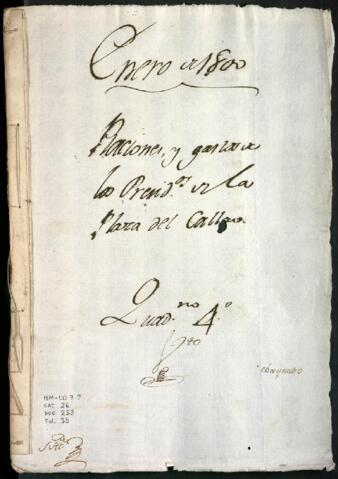 Enero de 1800
Raciones, y gastos de
los Presid.os de la
Plaza del Callao.
Quad.no 4.o
GM-CO 3.7
CAJ. 26
DOC 233
Fol. 35